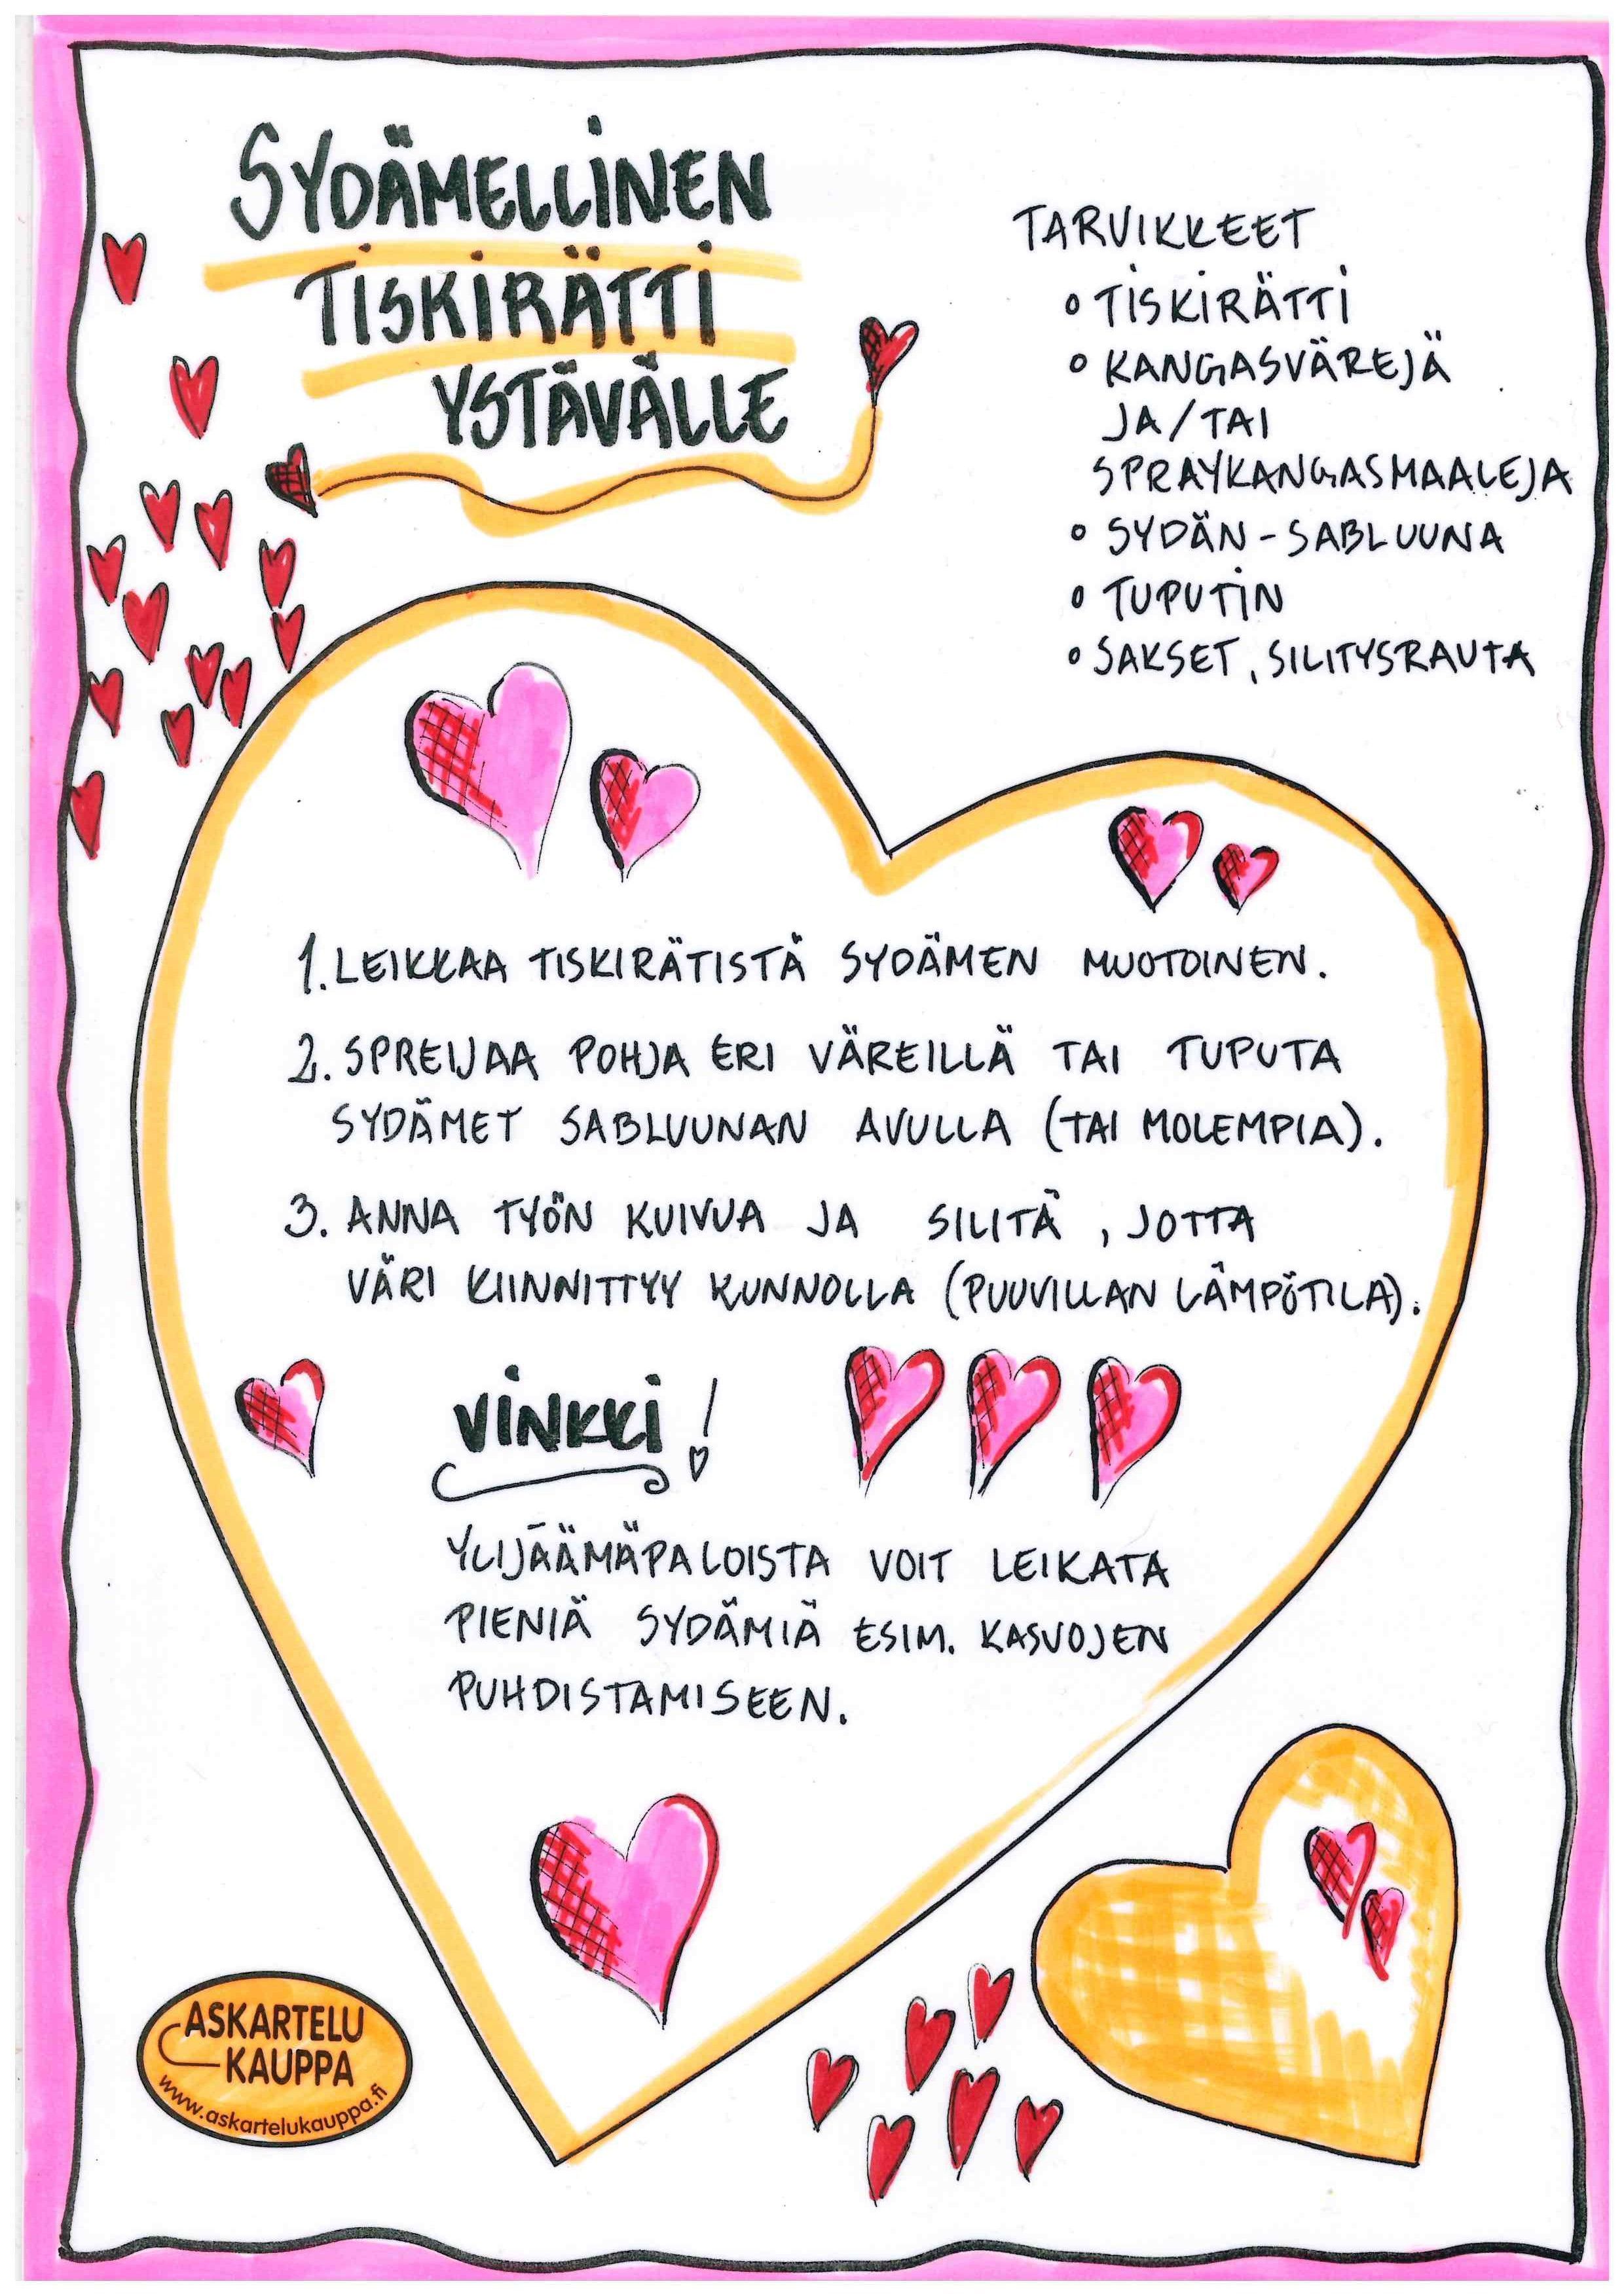 SYDÄMELLINEN
TISKIRÄTTI
YSTÄVÄLLE
TARVIKKEET
° TISKIRÄTTI
° KANGASVÄREJÄ
JA/TAI
SPRAYKANGASMAALEJA
° SYDÄN-SABLUUNA
° TUPUTIN
° SAKSET, SILITYSRAUTA
1. LEIKKAA TISKIRÄTISTÄ SYDÄMEN MUOTOINEN.
2. SPREIJAA POHJA ERI VÄREILLÄ TAI TUPUTA
SYDÄMET SABLUUNAN AVULLA (TAI MOLEMPIA).
3. ANNA TYÖN KUIVUA JA SILITÄ, JOTTA
VÄRI KIINNITTYY KUNNOLLA (PUUVILLAN LÄMPÖTILA).
VINKKI!
YLIJÄÄMÄPALOISTA VOIT LEIKATA
PIENIÄ SYDÄMIÄ ESIM. KASVOJEN
PUHDISTAMISEEN.
ASKARTELU
KAUPPA
www.askartelukauppa.fi